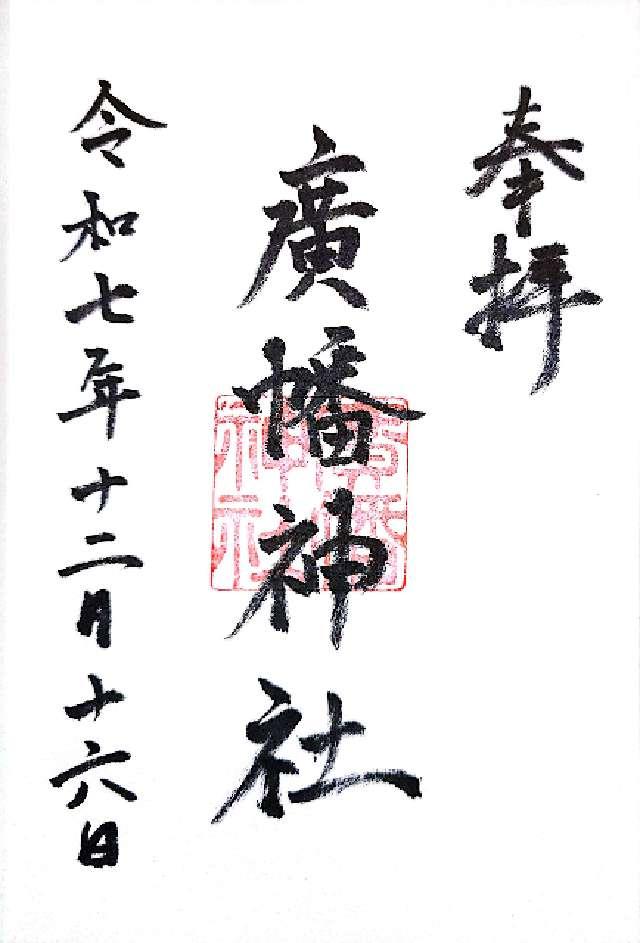 奉拝
廣幡神社
令和七年十二月十六日